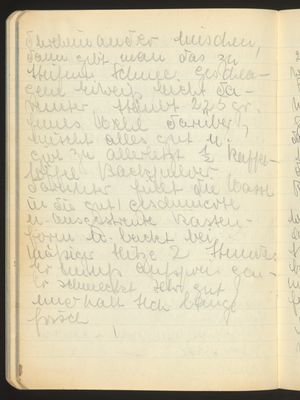 durcheinander mischen,
dann gibt man das zu
steifem Schnee geschla-
gene Eiweiß leicht da-
runter, staubt 225 gr.
feines Mehl darüber,
mischt alles gut u.
gibt zu allerletzt ½ Kaffee-
löffel Backpulver
darunter füllt die Masse
in die gut geschmierte
u. ausgestreute Kasten-
form u. backt bei
mäßiger Hitze 2 Stunden
Er muß aufspringen
Er schmeckt sehr gut
und hält sich lange
frisch